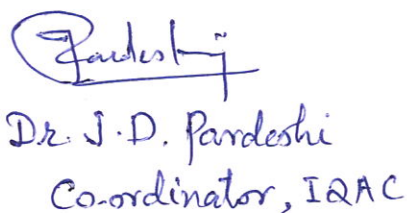 Pardeshi
Dr. J. D. Pardeshi
Co-ordinator, IQAC